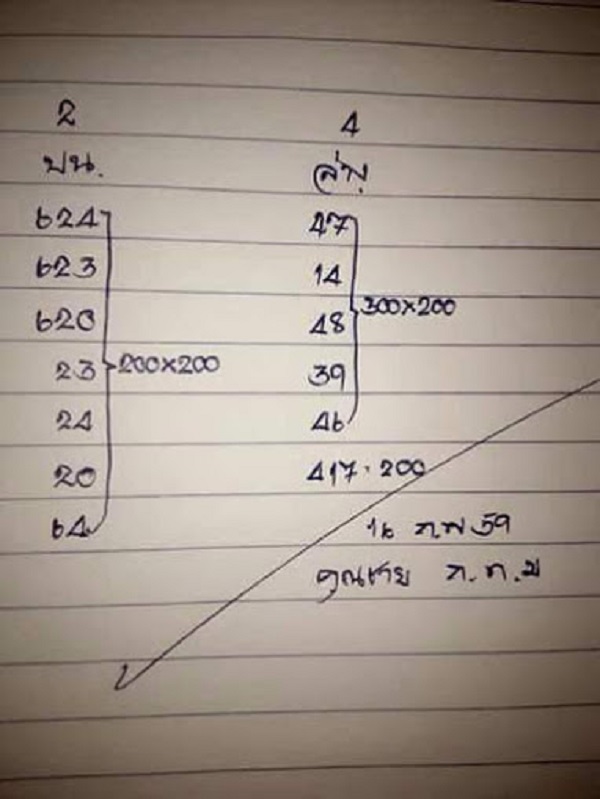 2
บน.
624
623
620
23
24
20
64
200×200
4
ล่าง
47
14
48
39
46
300×200
417 · 200
16 ก.พ 59
คุณชาย ก.ท.ม